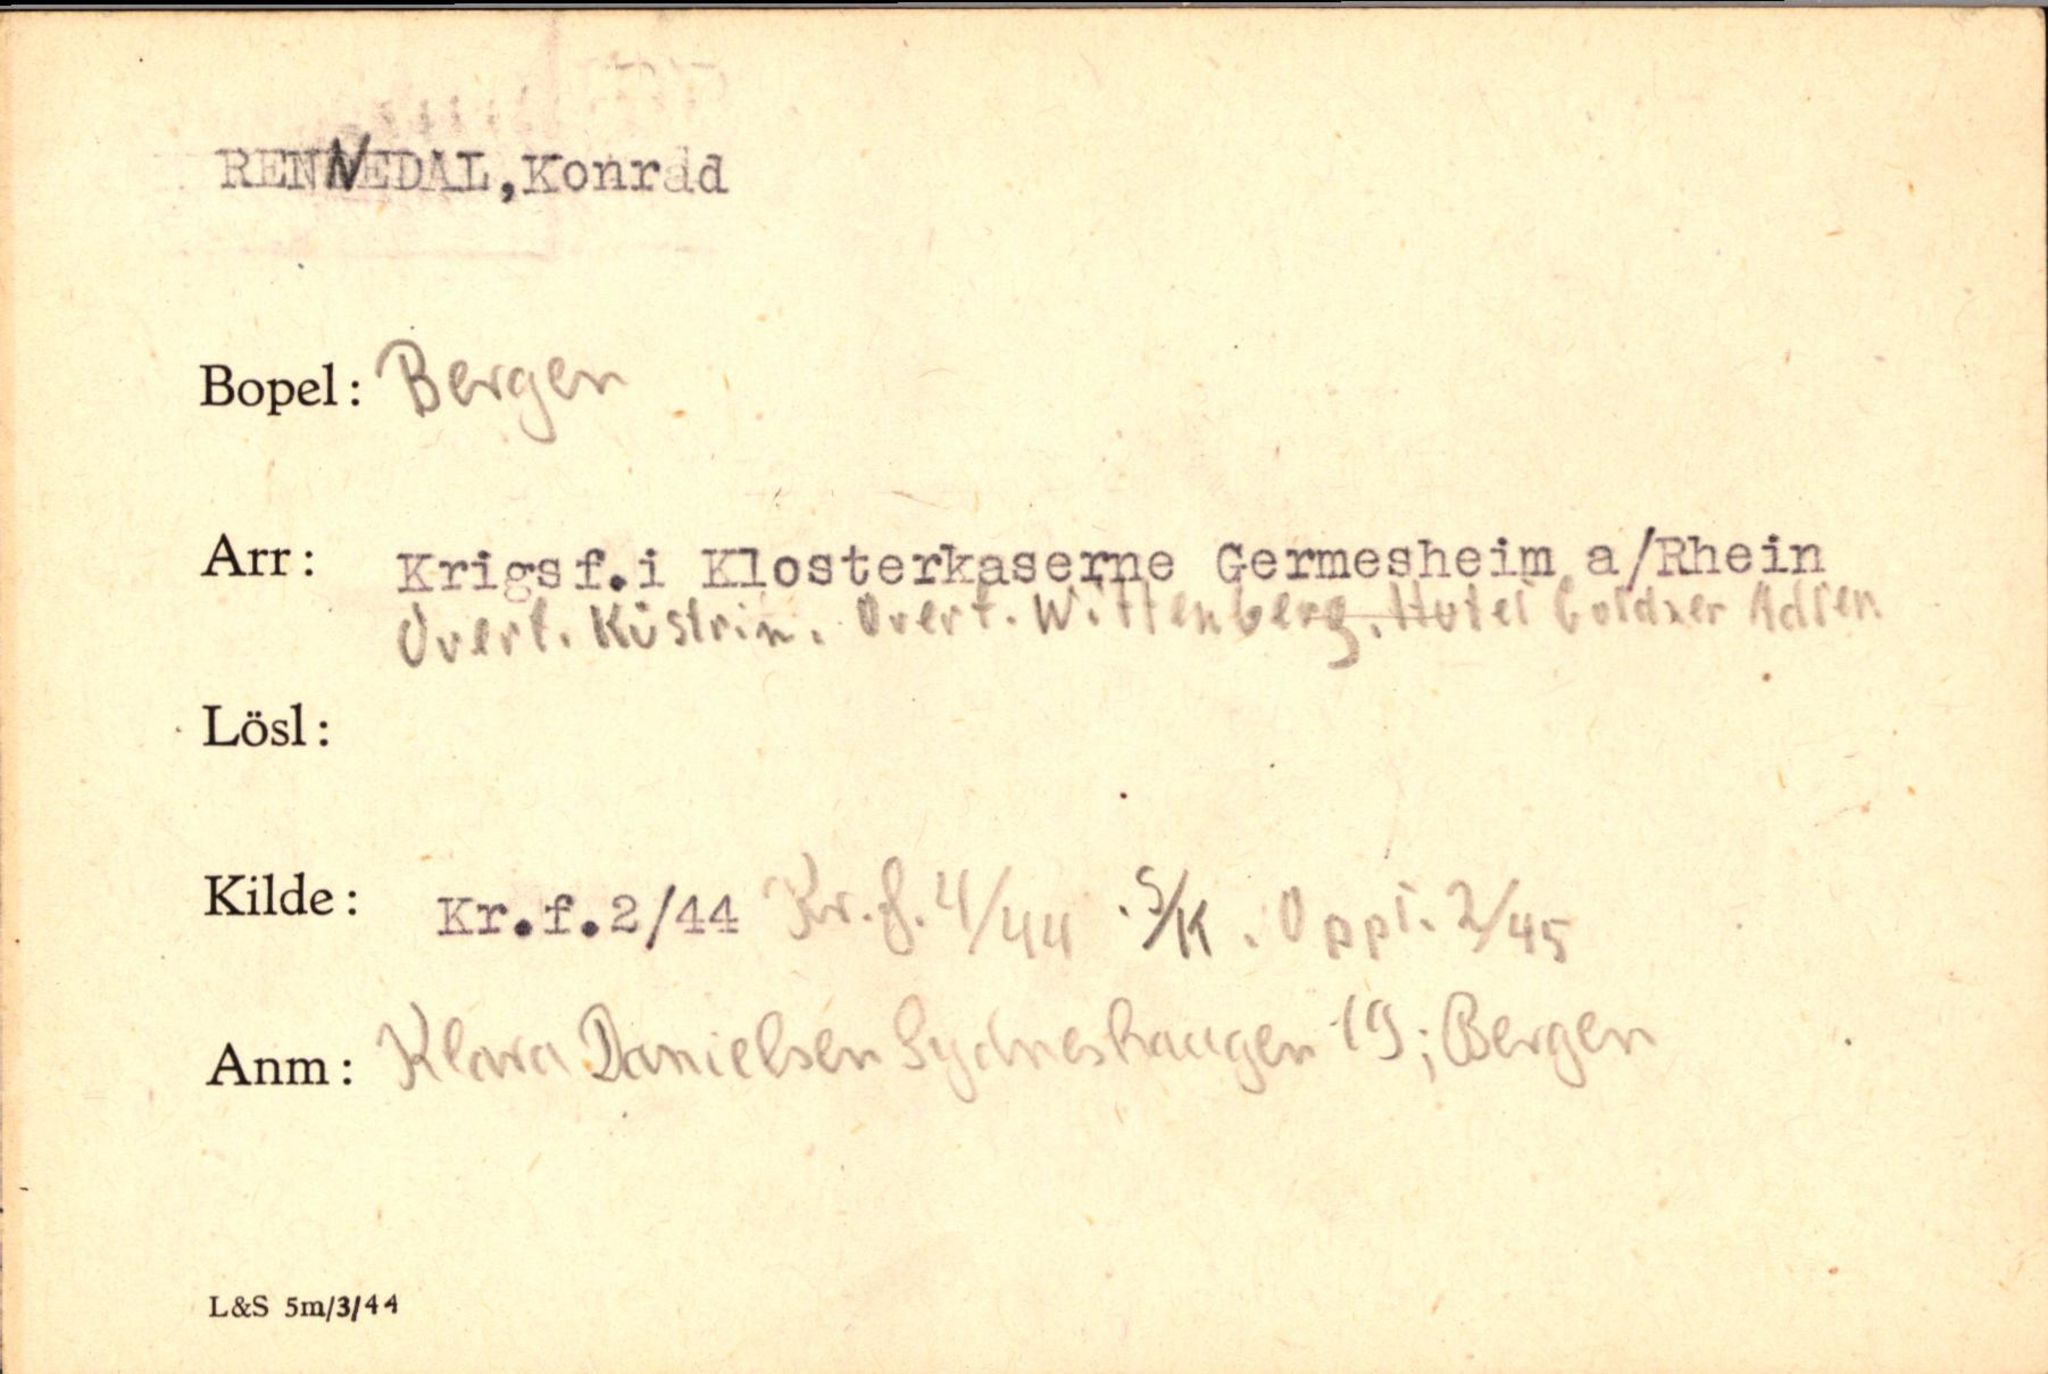 RENNEDAL, Konrad
Bopel: Bergen
Arr: Krigsf.i Klosterkaserne Germesheim a/Rhein
Overf. Küstrin. Overf. Wittenberg. Hotel Goldner Adler
Lösl:
Kilde: Kr.f.2/44 Kr.f.4/44 . S/K. Oppl. 2/45
Anm: Klara Danielsen Sydneshaugen 19; Bergen
L&S 5m/3/44